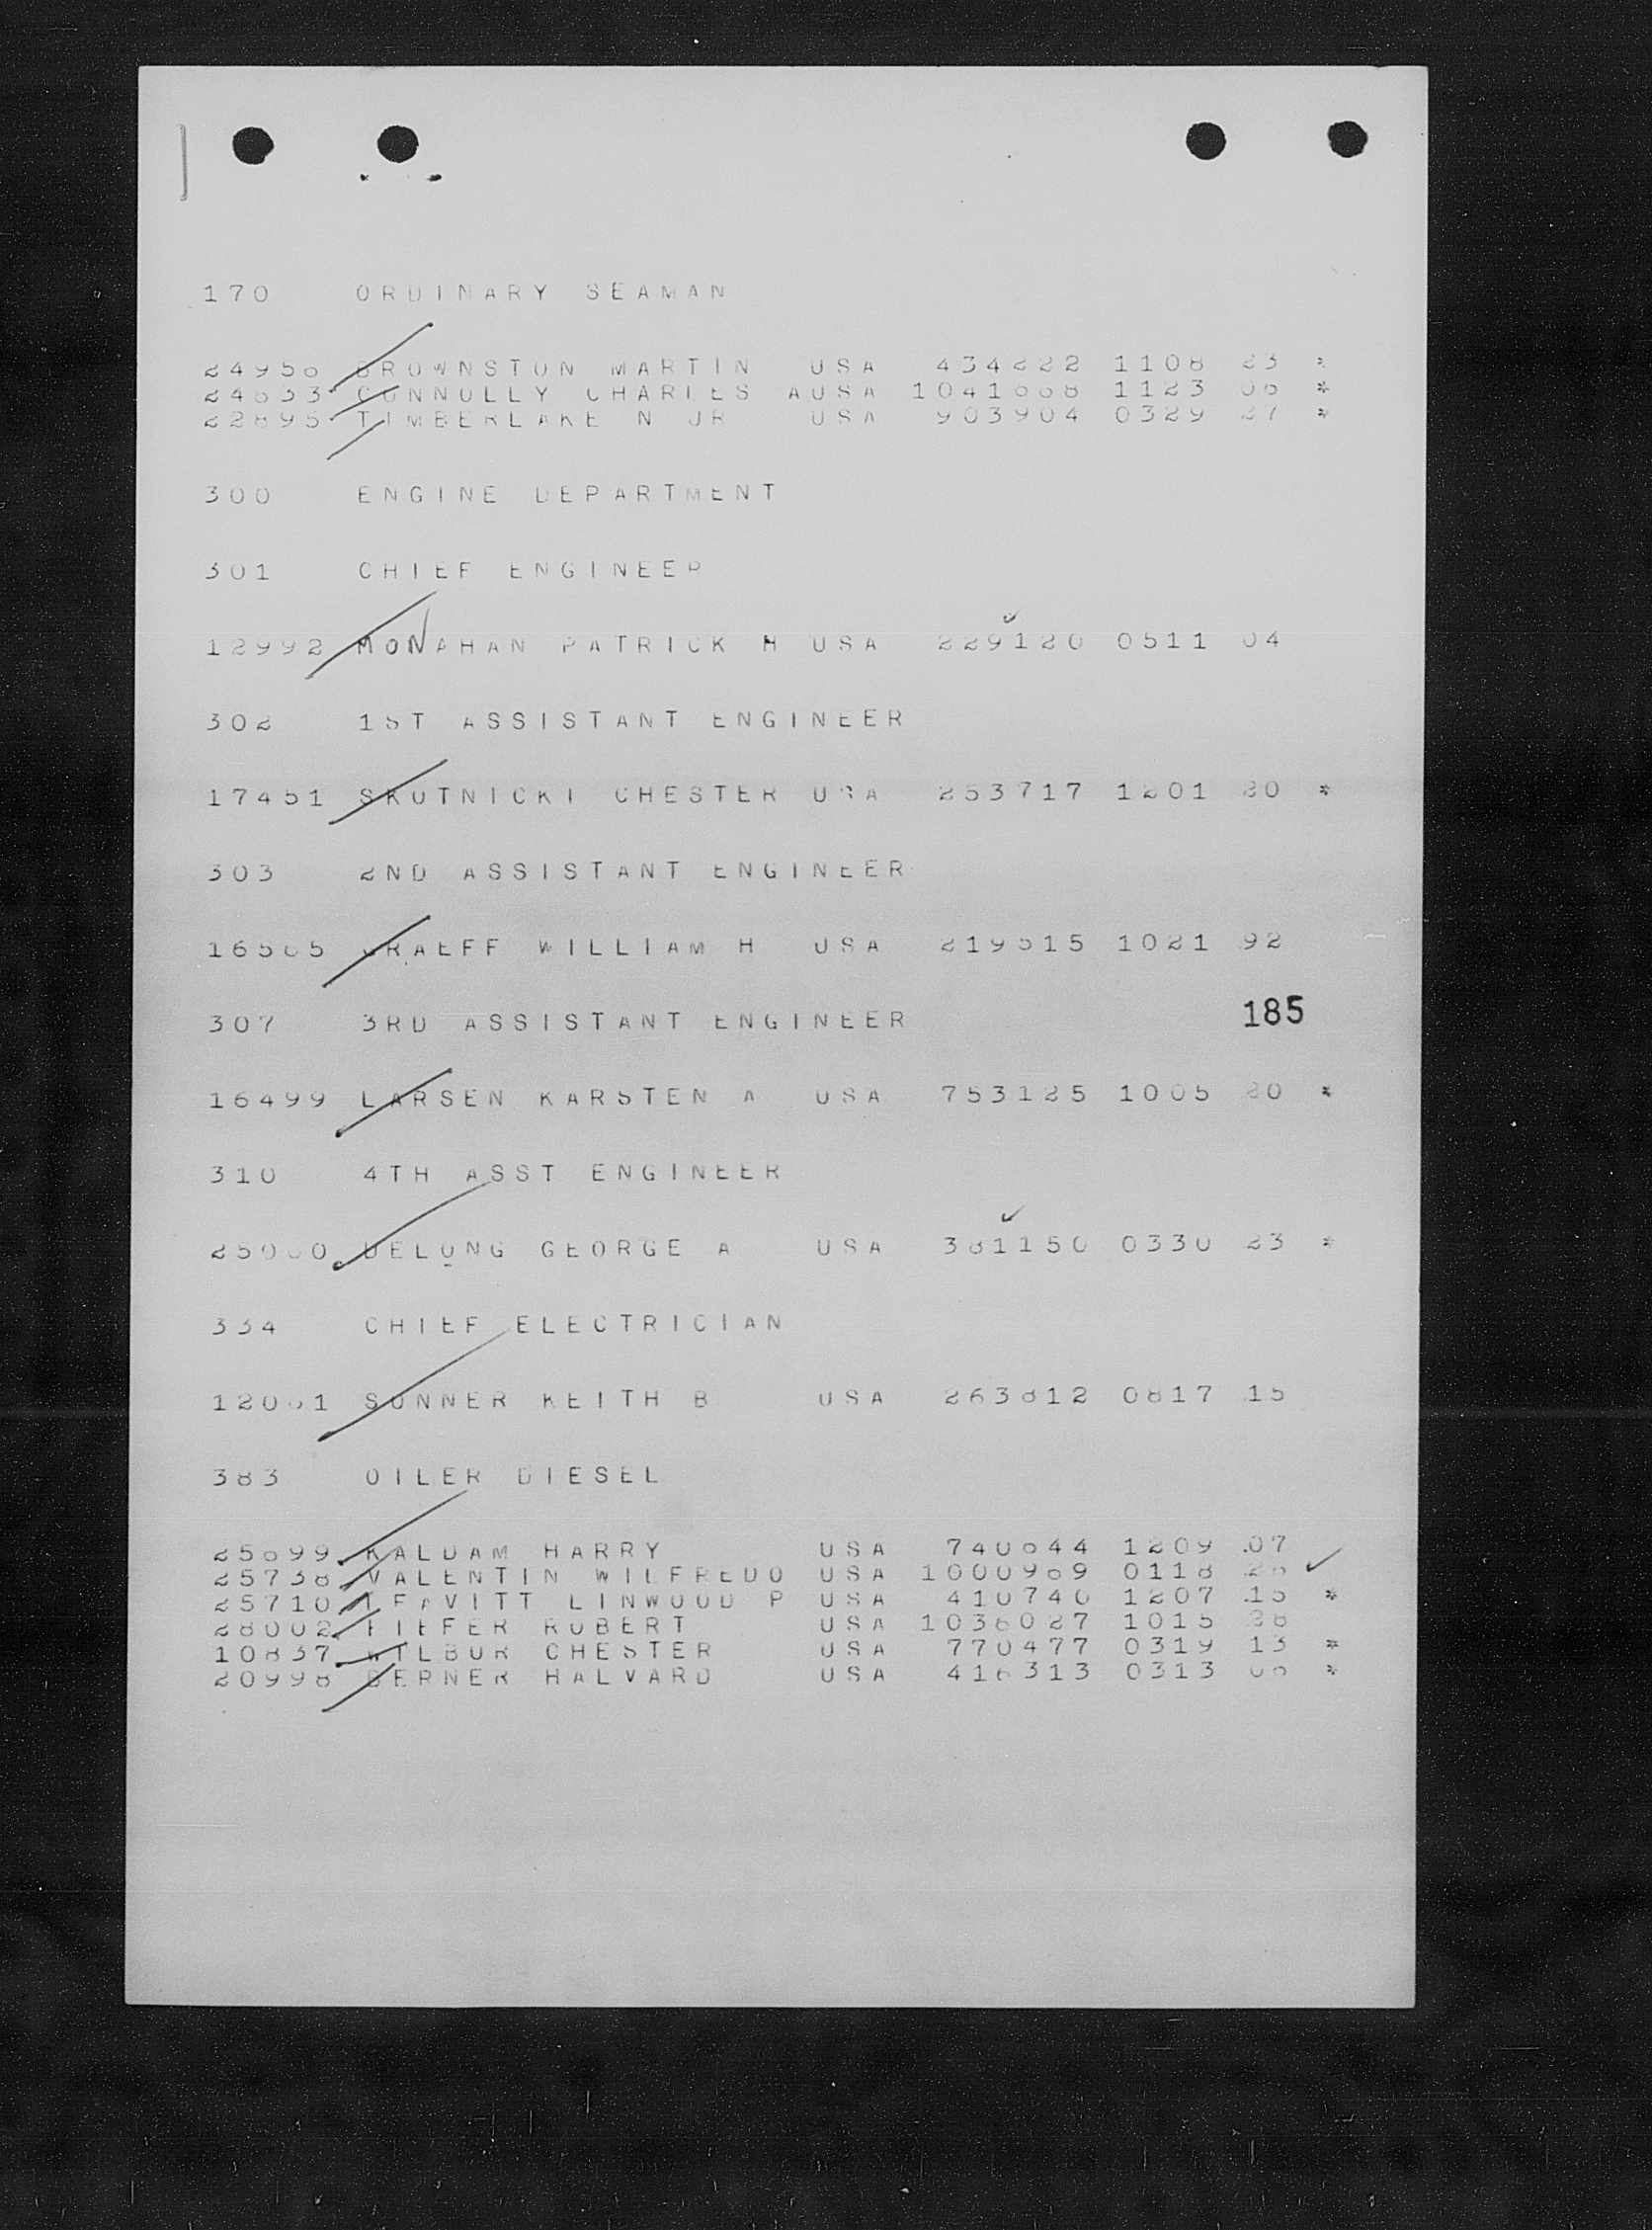 170 ORDINARY SEAMAN
BROWNSTON MARTIN USA 434222 1108 23 *
CONNOLLY CHARLES A USA 1123 *
22895 TIMBERLAKE N JR USA 903904 0329 27 *
300 ENGINE DEPARTMENT
301 CHIEF ENGINEER
12992 MONAHAN PATRICK H USA 229120 0511 04
302 1ST ASSISTANT ENGINEER
17451 SKUTNICKI CHESTER USA 253717 1201 20 *
303 2ND ASSISTANT ENGINEER
GRAEFF WILLIAM H USA 219515 1021 92
307 3RD ASSISTANT ENGINEER 185
16499 LARSEN KARSTEN A USA 753125 1005 20 *
310 4TH ASST ENGINEER
DELONG GEORGE A USA 381150 0330 23 *
334 CHIEF ELECTRICIAN
SONNER KEITH B USA 263812 0817 15
383 OILER DIESEL
KALDAM HARRY USA 1209 07
25738 VALENTIN WILFREDO USA 1000969 0118
25710 LEAVITT LINWOOD P USA 410740 1207 15 *
28002 FIEFER ROBERT USA 1036027 1015 28
10837 WILBUR CHESTER USA 770477 0319 13 *
20998 BERNER HALVARD USA 416313 0313 *